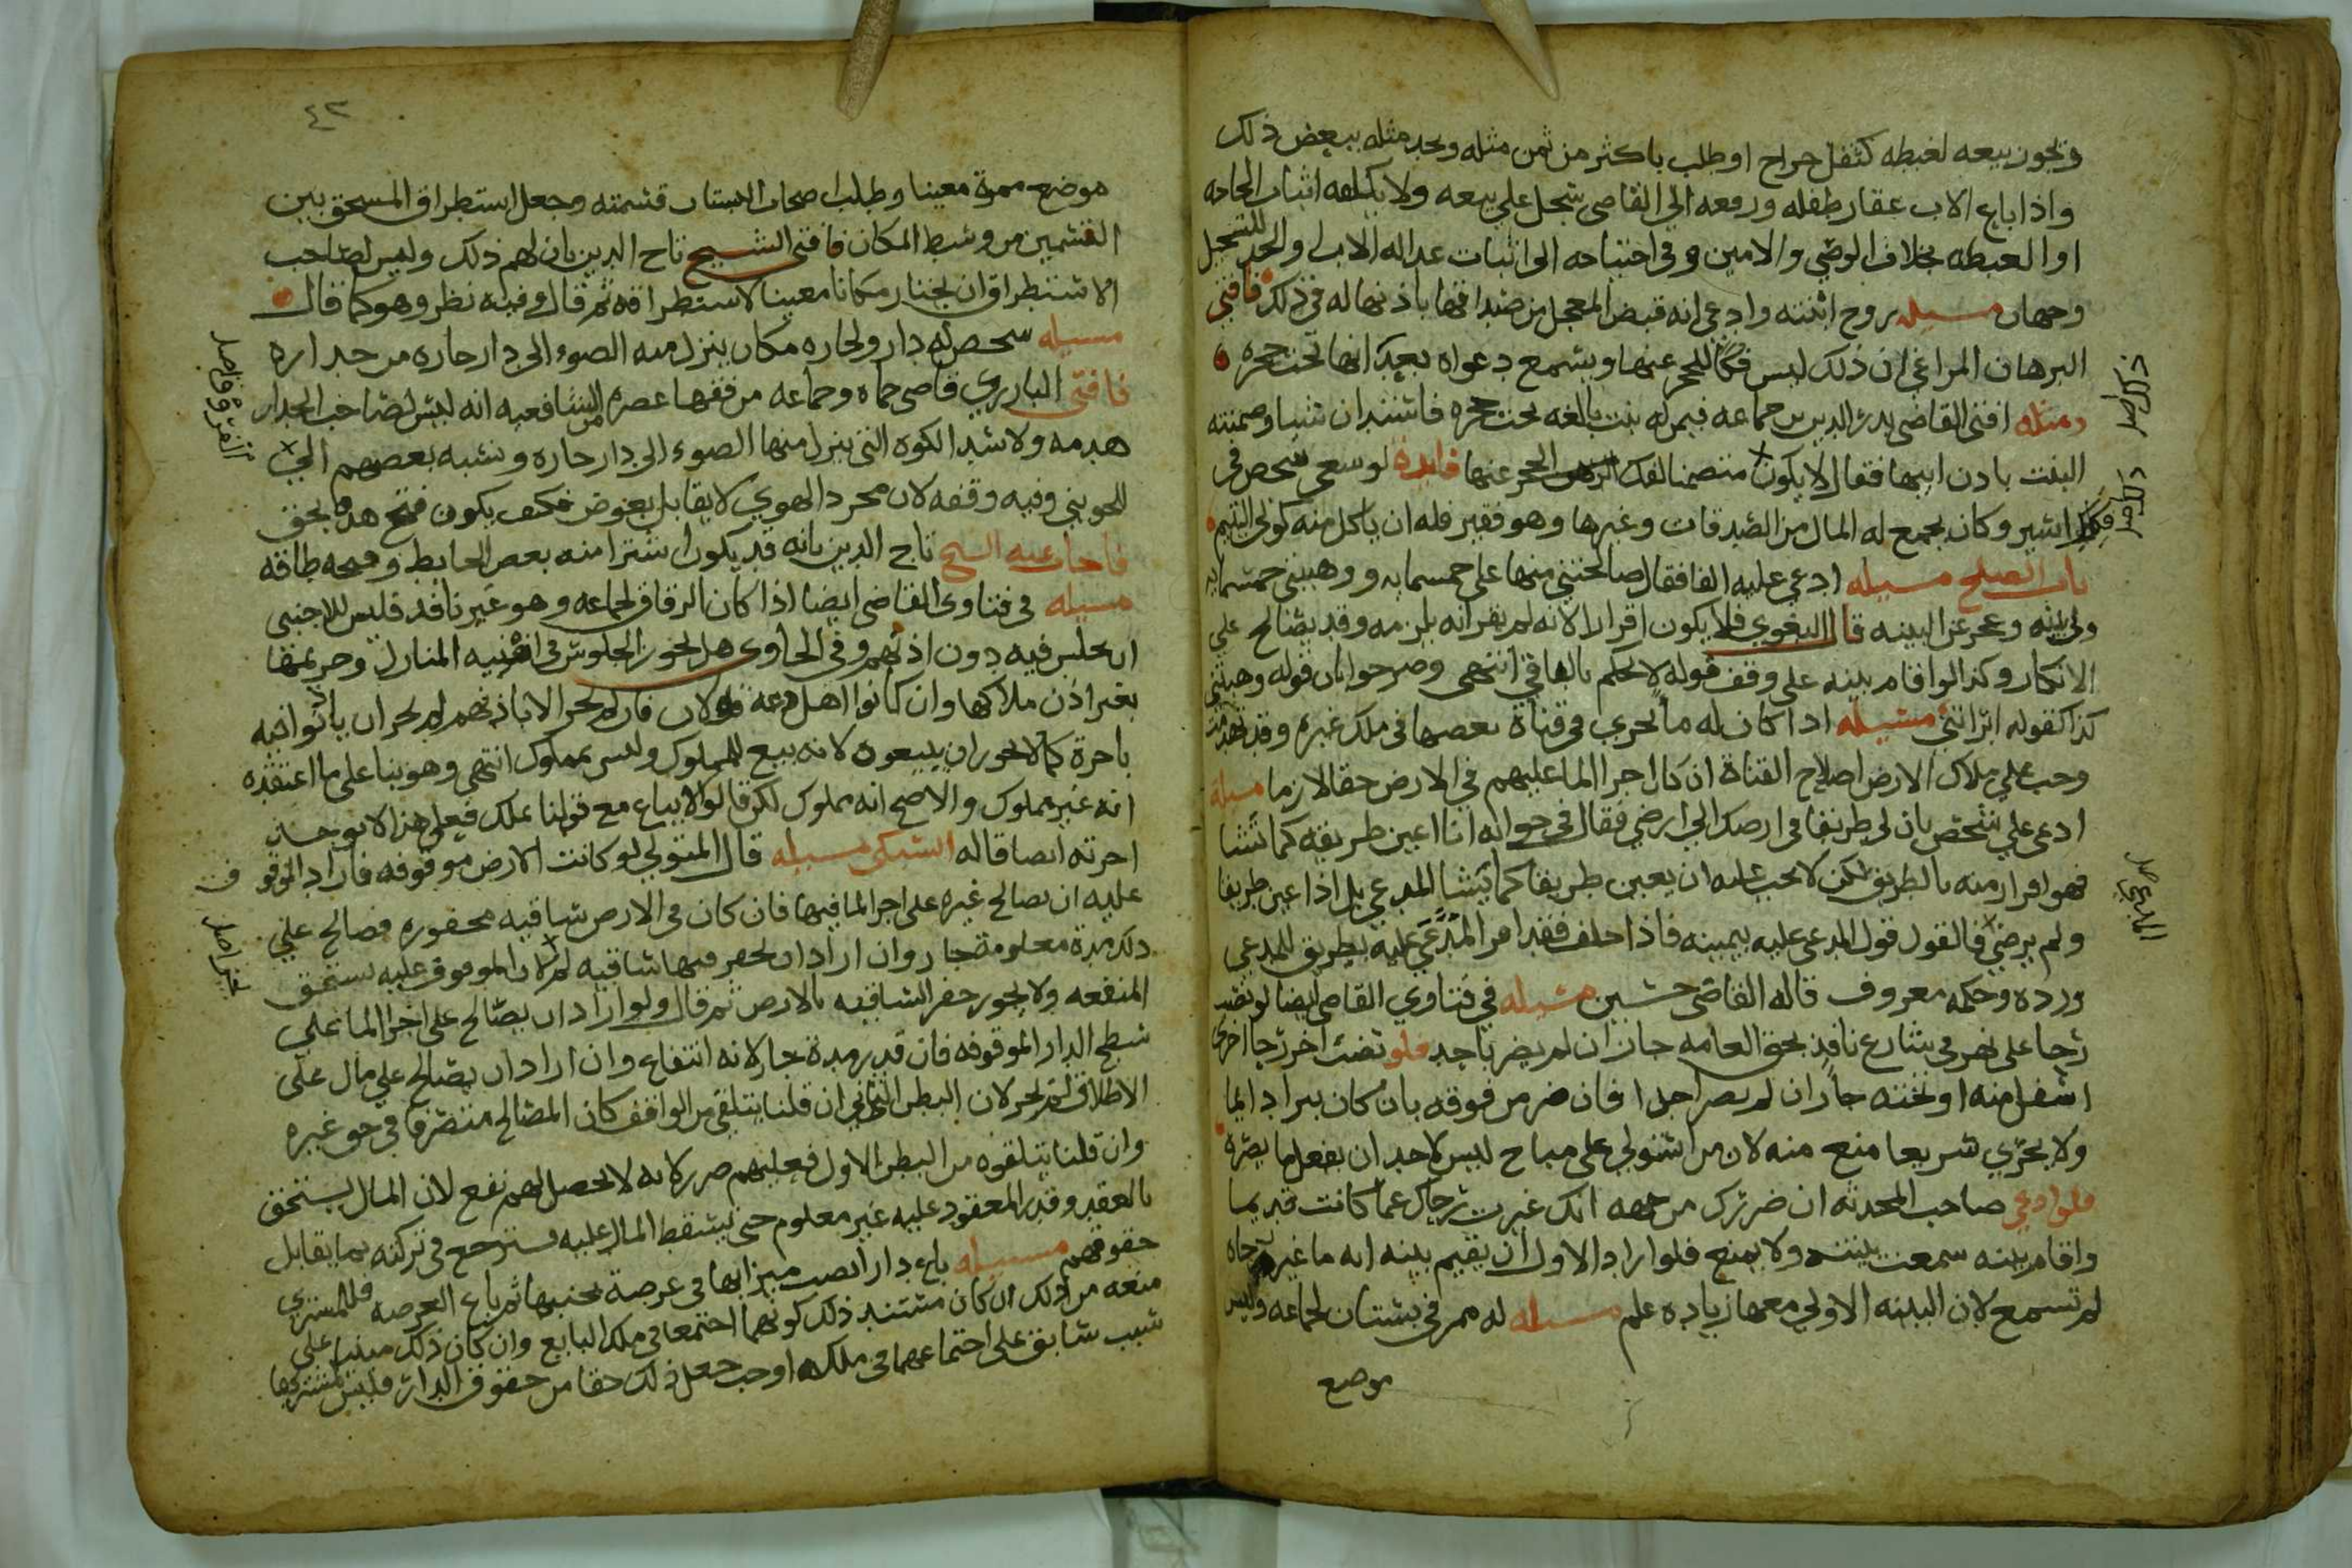 ويجوز بيعه لغبطه كثقل خراج او طلب باكثر من ثمن مثله ويجد مثله ببعض ذلك
واذا باع الاب عقار طفله ورفعه الي القاضي سجل علي بيعه ولا يكلفه اثبات الحاجه
او الغبطه بخلاف الوصي والامين وفي احتياجه الي اثبات عداله الاب والجد للتسجيل
وجهان مسيله زوج ابنته وادعي انه قبض المعجل من صداقها باذنها له في ذلك فافتي
البرهان المراغي ان ذلك ليس فكا للحجر عنها ويسمع دعواه بعد انها تحت حجره
ومثله افتي القاضي بدر الدين بن جماعه فيمن له بنت بالغه تحت حجره فاستدان شيا وضمنته
البنت باذن ابيها فقال لا يكون متضمنا لفك الحجر عنها فايده لو سعي شخص في
فك اسير وكان يجمع له المال من الصدقات وغيرها وهو فقير فله ان ياكل منه كولي اليتيم
باب الصلح مسيله ادعي عليه الفا فقال صالحتني منها علي خمسمايه ووهبتني خمسمايه
ولي بينه وعجز عن البينه قال البغوي فلا يكون اقرارا لانه لم يقر انه يلزمه وقد يصالح علي
الانكار وكذا لو اقام بينه علي وقف قوله لا يحكم بالباقي انتهي وصرحوا بان قوله وهبتني
كذا كقوله ابراتني مسيله اذا كان له ما يجري في قناة بعضها في ملك غيره وقد تهدمت
وجب علي ملاك الارض اصلاح القناة ان كان اجرا الما عليهم في الارض حقا لازما مسيلة
ادعي علي شخص بان لي طريقا في ارضك الي ارضي فقال في جوابه انا اعين طريقه كما نشا
فهو اقرار منه بالطريق لكن لا يجب عليه ان يعين طريقا كما يشا المدعي بل اذا عين طريقا
ولم يرض فالقول قول المدعي عليه بيمينه فاذا حلف فقد اقر المدعي عليه بطريق للمدعي
ورده وحكمه معروف قاله القاضي حسين مسيله في فتاوي القاضي ايضا لو نصب
رحا علي نهر في شارع نافذ بحق العامه جاز ان لم يضر باحد فلو نصب اخر رحا اخري
اسفل منه او تحته جاز ان لم يضر احدا فان ضر من فوقه بان كان يراد الما
ولا يجري سريعا منع منه لان من استولي علي مباح ليس لاحد ان يفعل ما يضره
فلو ادعي صاحب المحدثه ان ضررك من جهه انك غيرت رحاك عما كانت قديما
واقام بينه سمعت بينته ولا يمنع فلو اراد الاول ان يقيم بينه انه ما غير رحاه
لم تسمع لان البينه الاولي معها زياده علم مسيله له ممر في بستان لجماعه وليس
موضع
ذلك اصل
المدعي صل
٤٣
موضع ممره معينا وطلب اصحاب البستان قسمته وجعل استطراق المستحق بين
القسمين من وسط المكان فافتي الشيخ تاج الدين بان لهم ذلك وليس لصاحب
الاستطراق ان يختار مكانا معينا لاستطراقه ثم قال وفيه نظر وهو كما قال
مسيله شخص له دار ولجاره مكان ينزل منه الضوء الي دار جاره من جداره
فافتي البارزي قاضي حماه وجماعه من فقها عصره من الشافعيه انه ليس لصاحب الجدار
هدمه ولا سد الكوه التي ينزل منها الضوء الي دار جاره ونسبه بعضهم الي
للجويني وفيه وقفه لان مجرد الهوي لا يقابل بعوض فكيف يكون فتح هذا بحق
فاجاب عنه الشيخ تاج الدين بانه قد يكون اشترا منه بعض الحايط وفتحه طاقه
مسيله في فتاوي القاضي ايضا اذا كان الزقاق لجماعه وهو غير نافذ فليس للاجنبي
ان يجلس فيه دون اذنهم وفي الحاوي هل يجوز الجلوس في افنيه المنازل وحريمها
بغير اذن ملاكها وان كانوا اهل دعه قولان فان لم يجز الا باذنهم لم يجز ان ياذنوا فيه
باجرة كما لا يجوز ان يبيعوه لانه بيع للمملوك وليس بمملوك انتهي وهو بنا علي ما اعتقده
انه غير مملوك والاصح انه مملوك لكن قالوا لا يباع مع قولنا بملك فعلي هذا لا يوخذ
اجرته ايضا قاله السبكي مسيله قال المتولي لو كانت الارض موقوفه فاراد الموقوف
عليه ان يصالح غيره علي اجرا الما فيها فان كان في الارض ساقيه محفوره فصالح علي
ذلك مدة معلومة جاز وان اراد ان يحفر فيها ساقيه لم لان الموقوف عليه يستحق
المنفعه ولا يجوز حفر الساقيه بالارض ثم قال ولو اراد ان يصالح علي اجرا الما علي
سطح الدار الموقوفه فان قدر مدة جاز لانه انتفاع وان اراد ان يصالح علي مال علي
الاطلاق لم يجز لان البطن الثاني ان قلنا يتلقي من الواقف كان المصالح متصرفا في حق غيره
وان قلنا يتلقوه من البطن الاول فعليهم ضرر لانه لا يحصل لهم نفع لان المال يستحق
بالعقد وقدر المعقود عليه غير معلوم حتي يسقط المال عليه فيرجع في تركته بما يقابل
حقوقهم مسيله باع دارا نصب ميزابها في عرصة بجنبها ثم باع العرصه فللمشتري
منعه من ذلك ان كان مستند ذلك كونهما اجتمعا في ملك البايع وان كان ذلك مبنيا علي
سبب سابق علي اجتماعهما في ملكه اوجب جعل ذلك حقا من حقوق الدار فليس لمشتريها